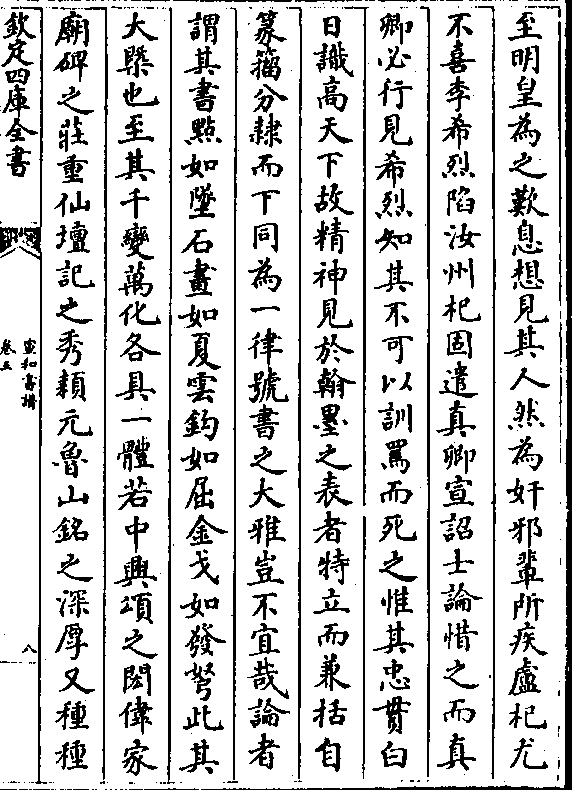 至明皇為之歎息想見其人然為奸邪輩所疾盧杞尤
不喜李希烈陷汝州杞固遣真卿宣詔士論惜之而真
卿必行見希烈知其不可以訓罵而死之惟其忠貫白
日識高天下故精神見於翰墨之表者特立而兼括自
篆籀分隸而下同為一律號書之大雅豈不宜哉論者
謂其書點如墜石畫如夏雲鈎如屈金戈如發弩此其
大槩也至其千變萬化各具一體若中興頌之閎偉家
廟碑之莊重仙壇記之秀穎元魯山銘之深厚又種種
欽定四庫全書
宣和書譜
卷五
八